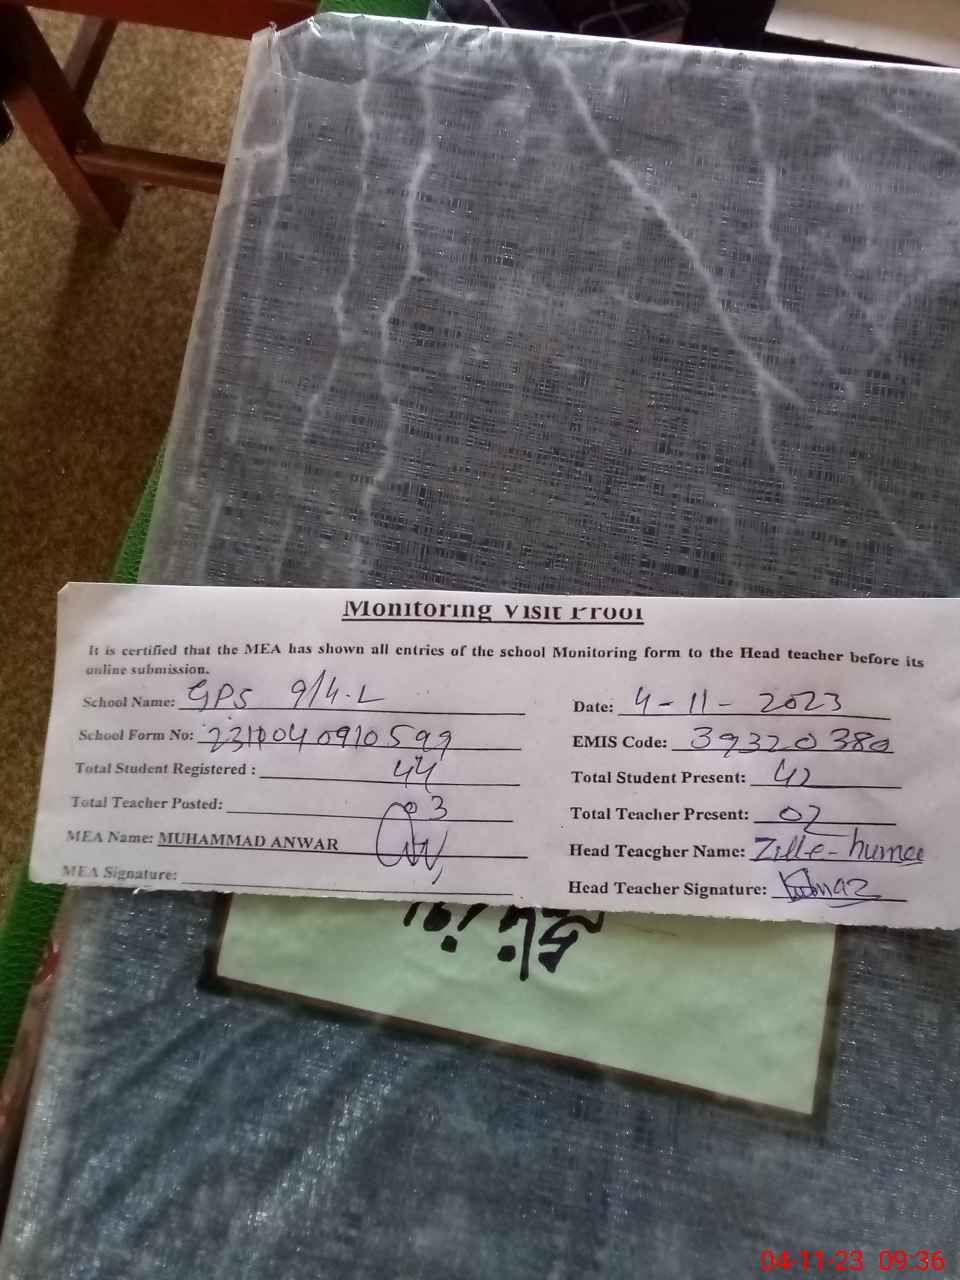 Monitoring Visit Proof
It is certified that the MEA has shown all entries of the school Monitoring form to the Head teacher before its
online submission.
School Name: GPS 9/4-L
Date: 4-11-2023
School Form No:
EMIS Code: 39320380
Total Student Registered : 44
Total Student Present: 42
Total Teacher Posted: 03
Total Teacher Present: 02
MEA Name: MUHAMMAD ANWAR
Head Teacgher Name: Zille-huma
MEA Signature:
Head Teacher Signature:
04-11-23 09:36